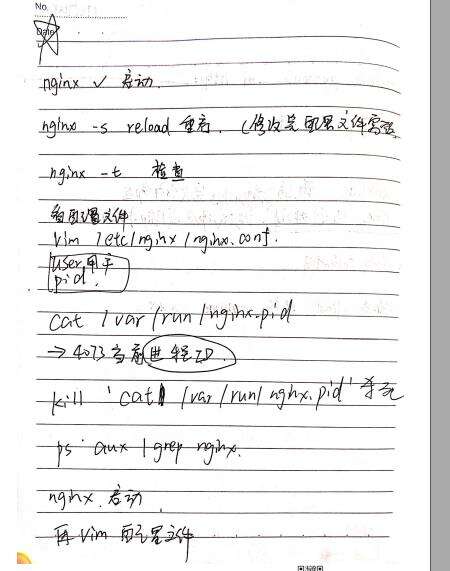 No.
Date
nginx ✓ 启动.
nginx -s reload 重启. (修改完配置文件需要
nginx -t 检查
看配置文件
Vim /etc/nginx/nginx.conf.
user 用户
pid.
cat /var/run/nginx.pid
→ 4073 当前进程ID.
kill 'cat /var/run/nginx.pid' 杀死
ps aux | grep nginx.
nginx. 启动
再 Vim 配置文件